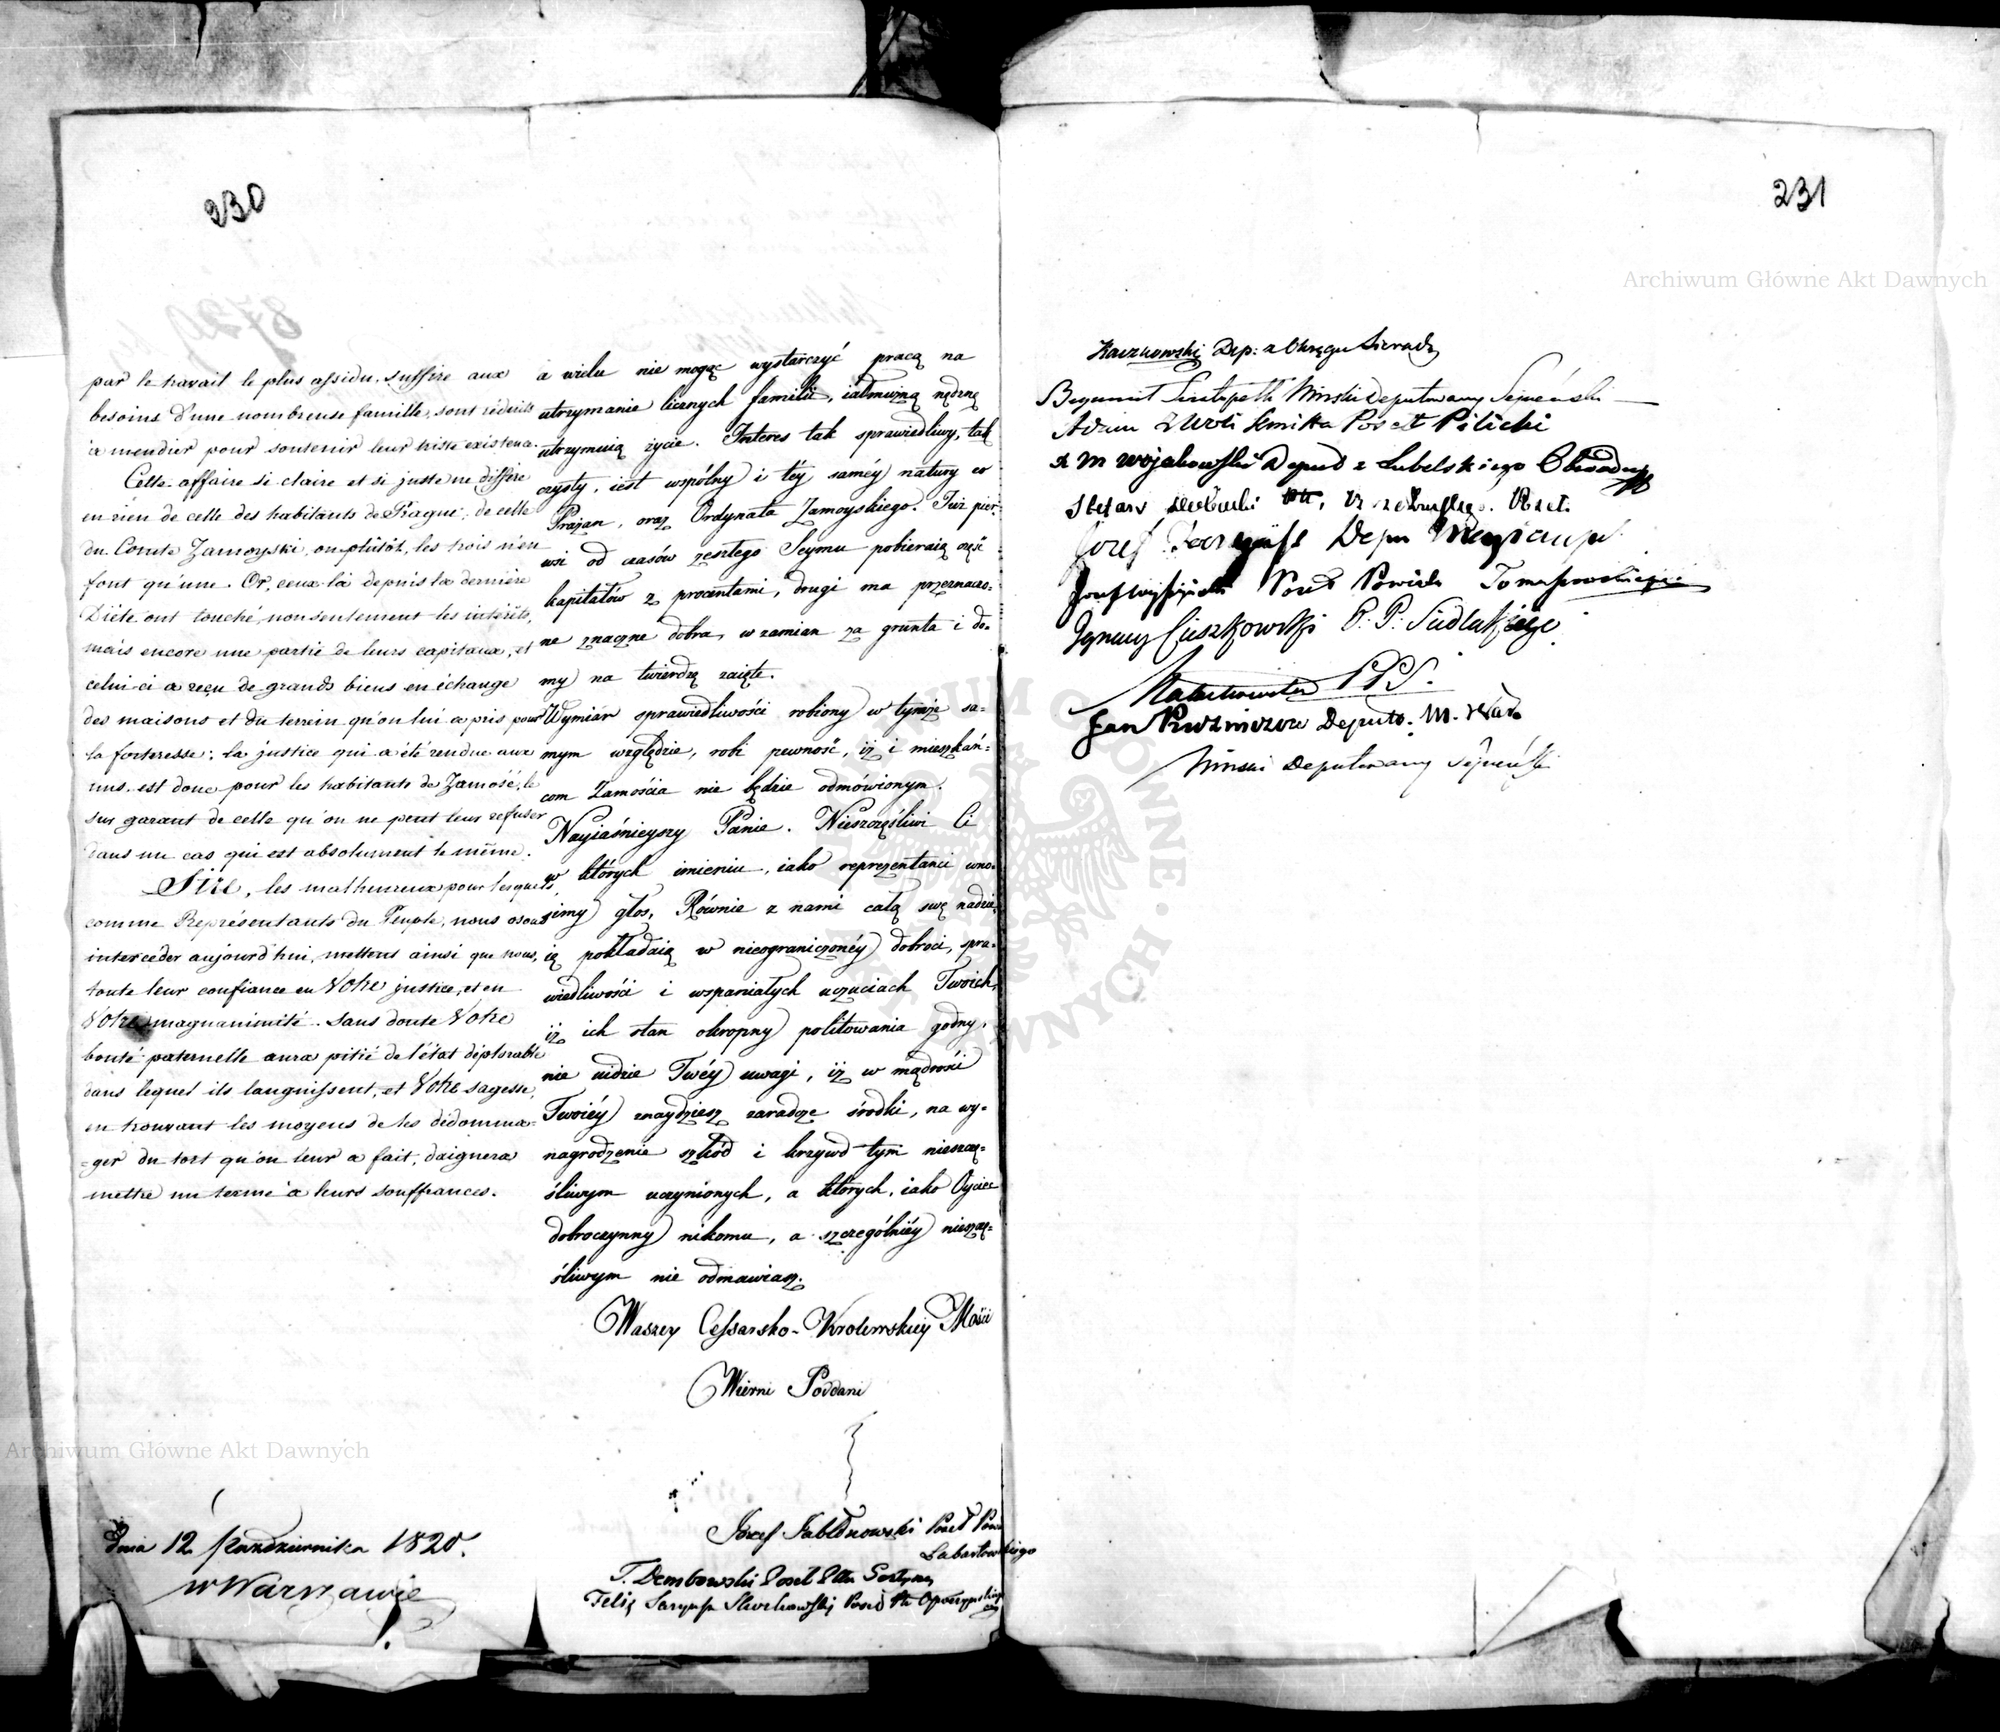 230
par le travail le plus assidu, suffire aux
besoins d'une nombreuse famille, sont réduits
à mendier pour soutenir leur triste existence.
Cette affaire si claire et si juste ne diffère
en rien de celle des habitants de Prague, de celle
du Comte Zamoyski, ou plûtôt, les trois n'en
font qu'une. Or, ceux-là depuis la dernière
Diète ont touché, non seulement les intérêts,
mais encore une partie de leurs capitaux, et
celui-ci a reçu de grands biens en échange
des maisons et du terrein qu'on lui a pris pour
la forteresse: la justice qui a été rendue aux
uns, est donc pour les habitants de Zamość, le
sur garant de celle qu'on ne peut leur refuser
dans un cas qui est absolument le même.
Sire, les malheureux pour lesquels,
comme Représentants du Peuple, nous osons
interceder aujourd'hui, mettent ainsi que nous,
toute leur confiance en Votre justice, et en
Votre magnanimité. Sans doute Votre
bonté paternelle aura pitié de l'état déplorable
dans lequel ils languissent, et Votre sagesse,
en trouvant les moyens de les dédomma-
-ger du tort qu'on leur a fait, daignera
mettre un terme à leurs souffrances.
a wielu nie mogąc wystarczyć pracą na
utrzymanie licznych familii, iałmużną nędzne
utrzymuią życie. Interes tak sprawiedliwy, tak
czysty, iest wspólny i téy saméy natury co
Prażan, oraz Ordynata Zamoyskiego. Już pier-
wsi od czasów zeszłego Seymu pobieraią część
kapitałów z procentami, drugi ma przeznaczo-
ne znaczne dobra, w zamian za grunta i do-
my na twierdzę zaięte.
Wymiar sprawiedliwości robiony w tymże sa-
mym względzie, robi pewność, iż i mieszkań-
com Zamościa nie będzie odmówionym.
Nayiaśnieyszy Panie. Nieszczęśliwi Ci
w których imieniu, iako reprezentanci wno-
simy głos, Równie z nami całą swę nadzie-
ię pokładaią w nieograniczonéy dobroci, spra-
wiedliwości i wspaniałych uczuciach Twoich,
iż ich stan okropny politowania godny,
nie uidzie Twéy uwagi, iż w mądrości
Twoiéy znaydziesz zaradcze środki, na wy-
nagrodzenie szkód i krzywd tym nieszczę-
śliwym uczynionych, a których, iako Oyciec
dobroczynny nikomu, a szczególniéy nieszczę-
śliwym nie odmawiasz.
Waszey Cessarsko-Krolewskiey Mości
Wierni Poddani
Dnia 12 Października 1820.
w Warszawie
Józef Jabłonowski Poseł Pow
Lubartowskiego
T. Dembowski Poseł Ptu
Felix Saryusz Skórkowski Poseł Ptu Opoczyńskiego
231
Kaczkowski Dep: z Okręgu Sieradz
Deputowany Seymowski
Adam Poseł Pilicki
Woiakowski Deputo z Lubelskiego Obwodu
Stefan
Józef Depu
Poseł Powiatu Tomaszowskiego
Ignacy Ciszkowski P. P. Siedleckiego
PPS.
Jan Deputo. M. War.
Deputowany
Archiwum Główne Akt Dawnych
Archiwum Główne Akt Dawnych